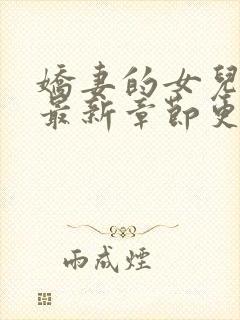 嬌妻的女兒
最新章節更
雨成煙